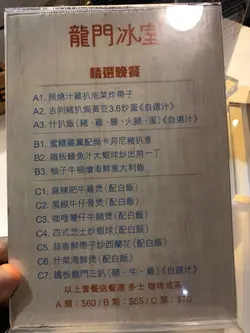 龍門冰室
精選晚餐
A1. 照燒汁雞扒泡菜炸帶子
A2. 吉列豬扒焗黃豆3.6炒蛋《自選汁》
A3. 什扒飯（豬．雞．腸．火腿．蛋）《自選汁》
B1. 蜜糖雞翼配焗卡邦尼豬扒意
B2. 鐵板鰻魚汁大蝦球炒出前一丁
B3. 柚子牛柳燴海鮮意大利飯
C1. 麻辣肥牛雞煲（配白飯）
C2. 黑椒牛仔骨煲（配白飯）
C3. 咖喱薯仔牛腩煲（配白飯）
C4. 四式芝士炒蝦球（配白飯）
C5. 蒜香鮮帶子炒西蘭花（配白飯）
C6. 什菜海鮮煲（配白飯）
C7. 鐵板龍門三扒（豬．牛．雞）《自選汁》
以上套餐送餐湯 多士 咖啡或茶
A類：$60 / B類：$65 / C類：$70